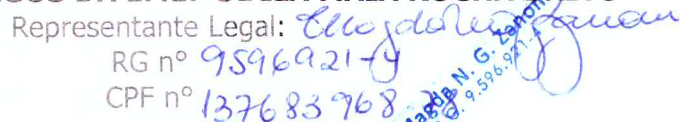 Representante Legal:
RG nº 9596921-4
CPF nº 137683968-78
Magda N. G. Zanoni
G. 9.596.921-4